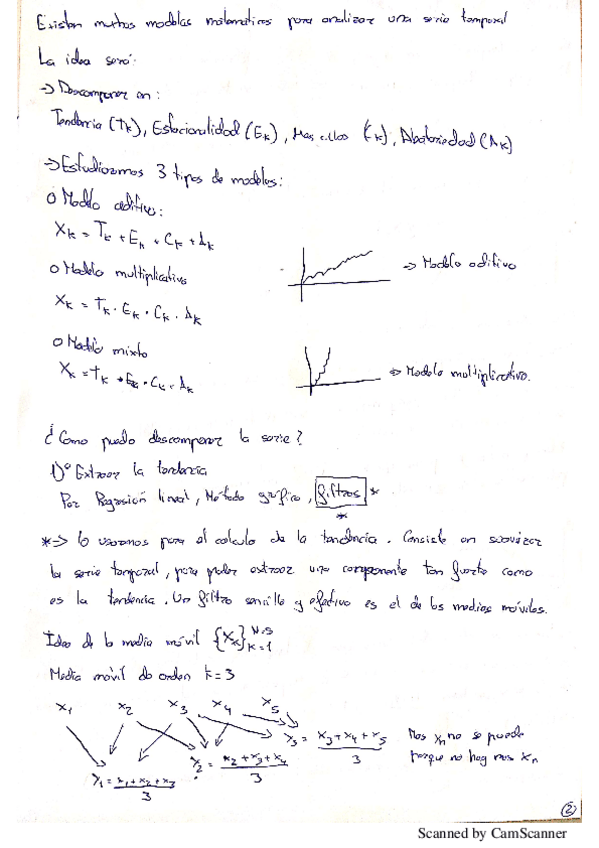 Existen muchos modelos matematicos para analizar una serie temporal
La idea será:
→ Descomponer en:
Tendencia (Tk), Estacionalidad (Ek), (Ck), Aleatoriedad (Ak)
→ Estudiaremos 3 tipos de modelos:
o Modelo aditivo:
Xk = Tk + Ek + Ck + Ak
→ Modelo aditivo
o Modelo multiplicativo
Xk = Tk · Ek · Ck · Ak
o Modelo mixto
Xk = Tk + Ek · Ck · Ak
→ Modelo multiplicativo.
¿Como puedo descomponer la serie?
1)º Extraer la tendencia
Por Regresión lineal, Método gráfico, filtros *
*
*→ lo usaremos para el calculo de la tendencia. Consiste en suavizar
la serie temporal, para poder extraer una componente tan fuerte como
es la tendencia. Un filtro sencillo y efectivo es el de las medias móviles.
Idea de la media móvil {Xk} N=5 k=1
Media móvil de orden k=3
x1 x2 x3 x4 x5
y3 = x3+x4+x5 / 3
Mas xn no se puede
porque no hay mas xn
y1 = x1+x2+x3 / 3
y2 = x2+x3+x4 / 3
2
Scanned by CamScanner